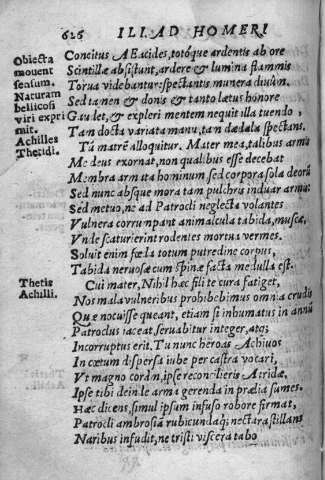 626 ILIAD HOMERI
Concitus AEacides, totóque ardentis ab ore
Scintillæ absistunt, ardere & lumina flammis
Torua videbantur: spectantis munera diuûm.
Sed tamen & donis & tanto lætus honore
Gaudet, & expleri mentem nequit illa tuendo,
Tam docta variata manu, tam dædala spectans.
Tū matrē alloquitur. Mater mea, talibus armis
Me deus exornat, non qualibus esse decebat
Membra armita hominum, sed corpora sola deorū
Sed nunc absque mora tam pulchra induar arma:
Sed metuo, ne ad Patrocli neglecta volantes
Vulnera corrumpant animalcula tabida, muscæ,
Vnde scaturierint rodentes mortua vermes.
Soluit enim fœla totum putredine corpus,
Tabida neruosæ cum spinæ facta medulla est.
Cui mater, Nihil hæc fili te cura fatiget,
Nos mala vulneribus prohibebimus omnia crudis
Quæ nocuisse queant, etiam si inhumatus in annū
Patroclus iaceat, seruabitur integer, atq;
Incorruptus erit. Tu nunc heroas Achiuos
In cœtum dispersa iube per castra vocari,
Vt magno coràm, ipse reconcilieris Atridæ,
Ipse tibi dein le arma gerenda in prælia sumes.
Hæc dicens, simul ipsum infuso robore firmat,
Patrocli ambrosiā rubicundaq; nectara stillans
Naribus infudit, ne tristi viscera tabo
Obiecta
mouent
sensum.
Naturam
bellicosi
viri expri
mit.
Achilles
Thetidi.
Thetis
Achilli.